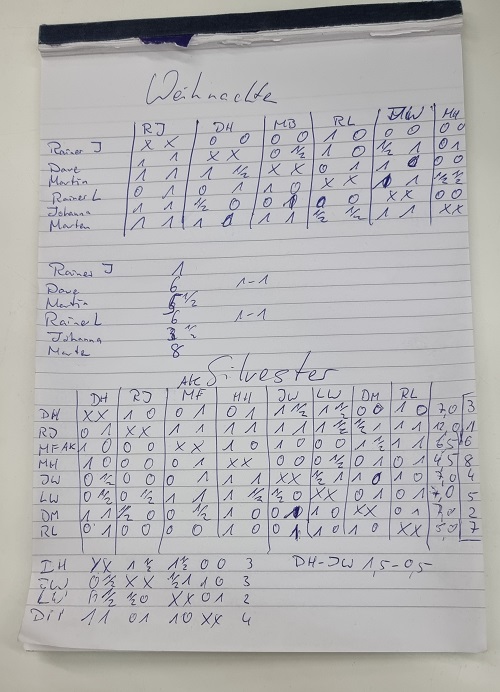 Weihnachte
RJ DH MB RL JW MH
Rainer J X X 0 0 0 0 1 0 0 0 0 0
Dave 1 1 X X 0 ½ 1 0 ½ 1 0 1
Martin 1 1 1 ½ X X 0 1 1 0 0 0
Rainer L 0 1 0 1 1 0 X X 0 1 ½ ½
Johanna 1 1 ½ 0 0 0 0 X X 0 0
Marten 1 1 1 0 1 1 ½ ½ 1 1 X X
Rainer J 1
Dave 6 1-1
Martin 5 ½
Rainer L 6 1-1
Johanna 3 ½
Marten 8
Silvester
AK
DH RJ MF HH JW LW DM RL
DH X X 1 0 0 1 0 1 1 ½ 1 ½ 0 0 1 0 7,0 3
RJ 0 1 X X 1 1 1 1 1 1 ½ ½ 1 1 1 12,0 1
MF AK 1 0 0 0 X X 1 0 1 0 0 1 ½ 1 1 6,5 6
MH 1 0 0 0 0 1 X X 0 0 0 ½ 0 1 0 1 4,5 8
JW 0 ½ 0 0 0 1 1 1 X X ½ 1 1 0 1 0 7,0 4
LW 0 ½ 0 ½ 1 1 1 ½ ½ 0 X X 0 1 0 1 7,0 5
DM 1 1 ½ 0 0 ½ 1 0 0 1 0 X X 0 1 2
RL 0 1 0 0 0 0 1 0 0 1 1 0 1 0 X X 5,0 7
DH X X 1 ½ 1 ½ 0 0 3 DH-JW 1,5-0,5
JW 0 ½ X X ½ 1 1 0 3
LW 0 ½ ½ 0 X X 0 1 2
DM 1 1 0 1 1 0 X X 4